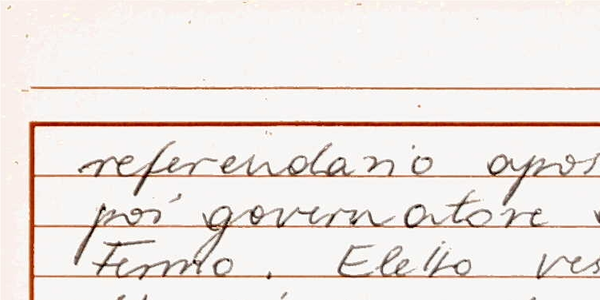 referendario apos
poi governatore
Fermo. Eletto ves